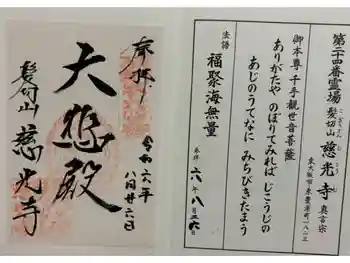 第二十四番霊場
髪切山 慈光寺 真言宗
こぎりさん じこうじ
東大阪市東豊浦町一八一三
御本尊 千手観世音菩薩
ありがたや のぼりてみれば じこうじの
あじのうてなに みちびきたまう
法語
福聚海無量
参拝 六年八月二六日
奉拝
令和六年
八月廿六日
大悲殿
髪切山 慈光寺